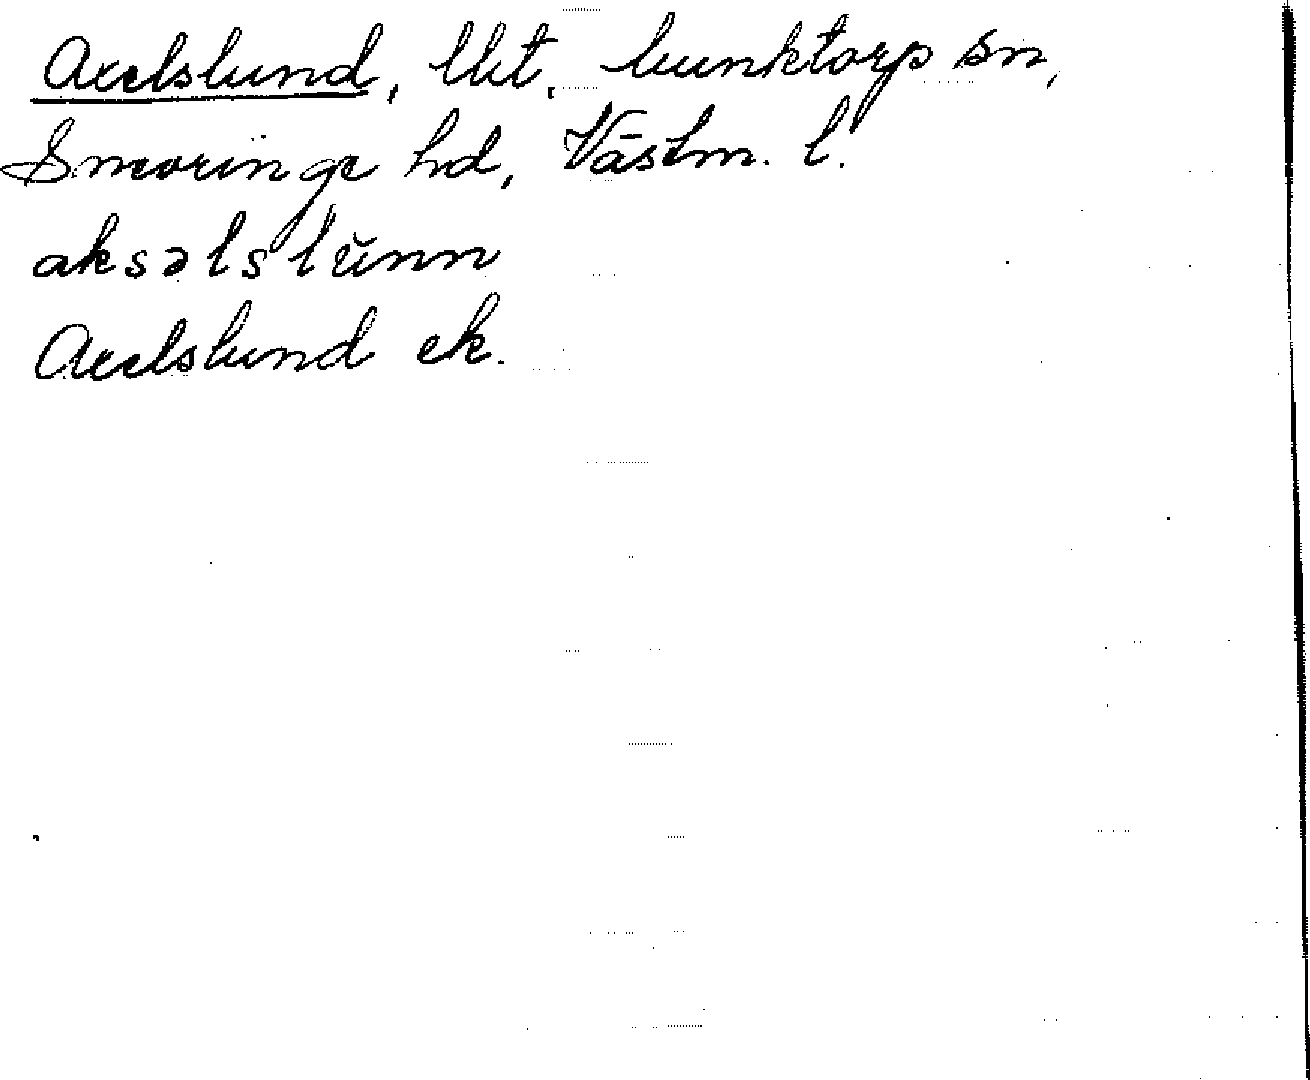 Axelslund, lht, Munktorp sn,
Snevringe hd, Västm. l.
aksəlslŭnn
Axelslund ek.